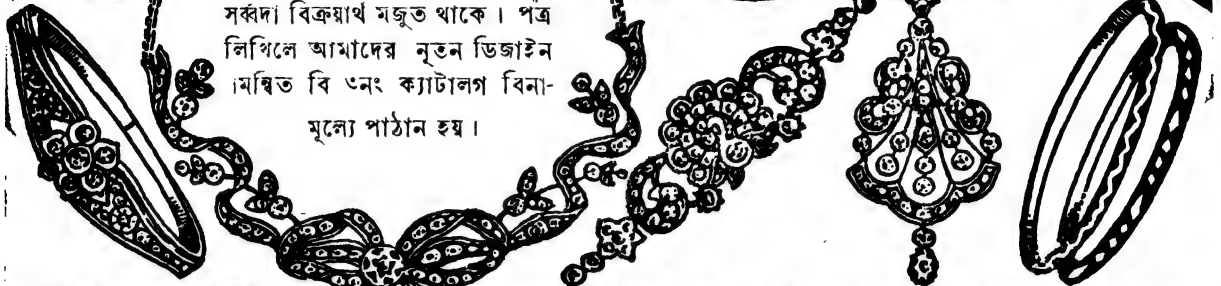 সর্ব্বদা বিক্রয়ার্থ মজুত থাকে । পত্র
লিখিলে আমাদের নূতন ডিজাইন
বি ৩নং ক্যাটালগ বিনা-
মূল্যে পাঠান হয় ।